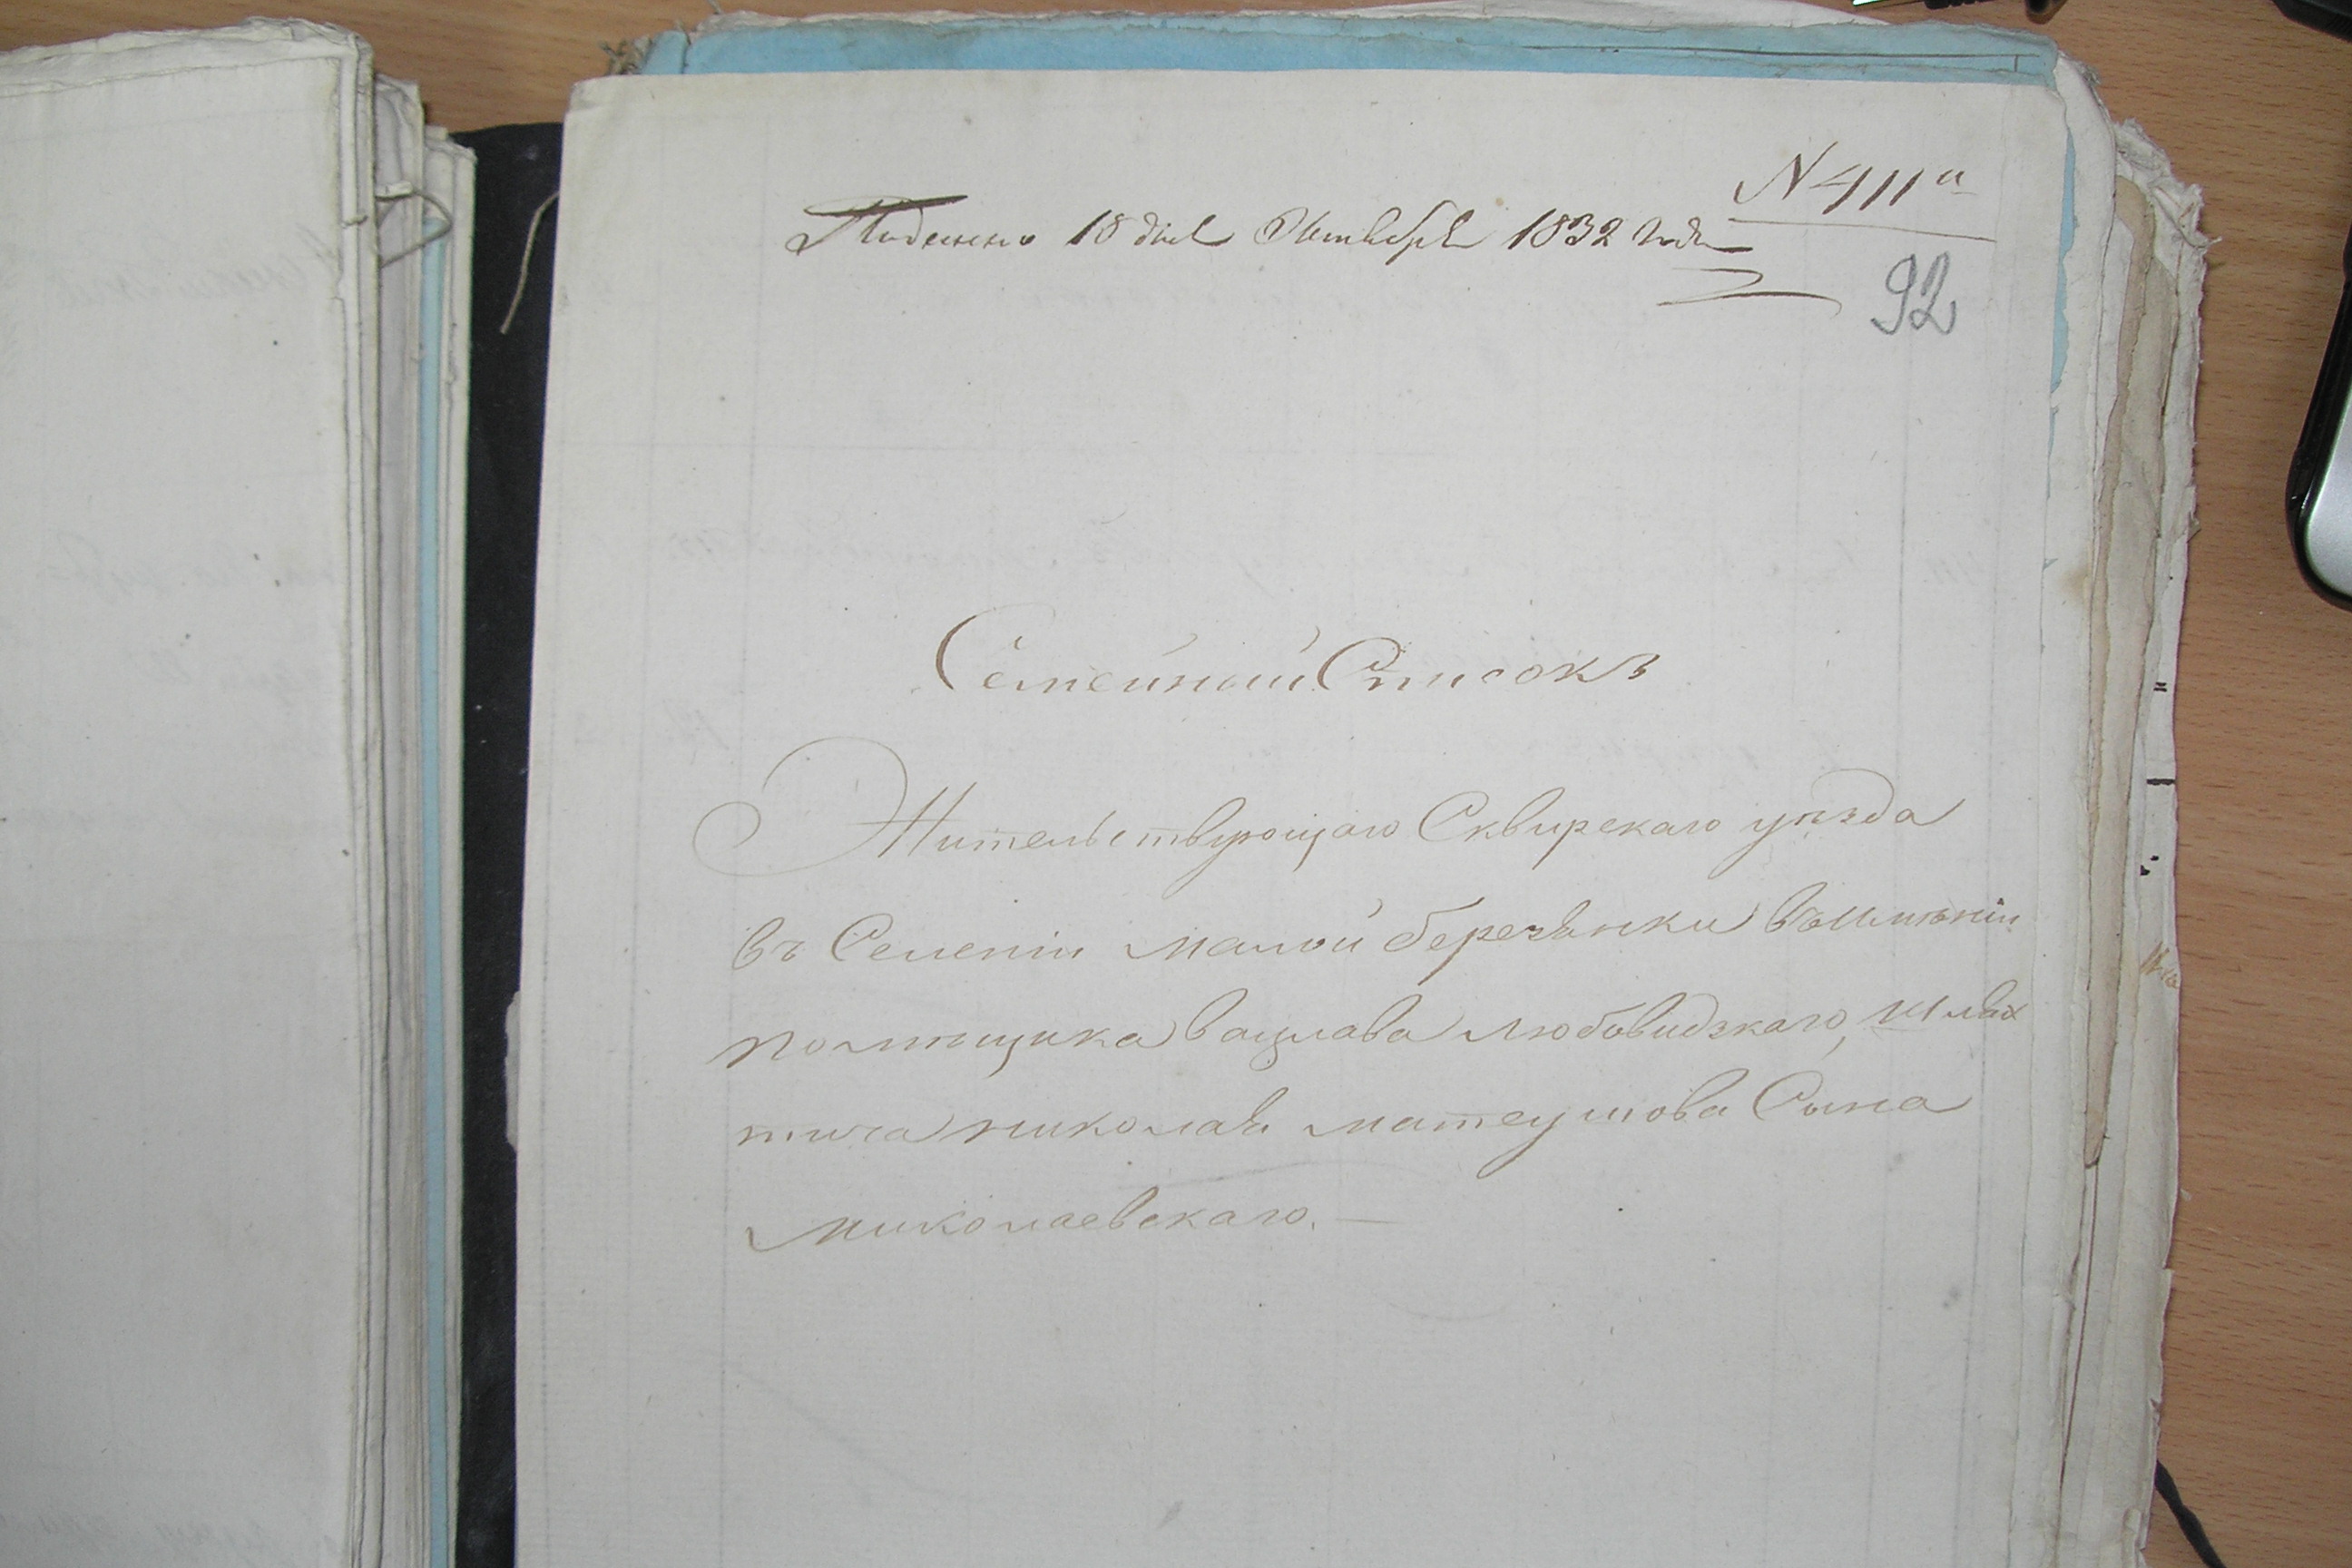 N 411й
Подано 18 дня Октября 1832 года
92
Семейный Списокъ
Жительствующаго Сквирскаго уезда
въ Селеніи малой березянки въ имѣніи
помещика вацлава любовидзкаго, шлях
тича николая матеушова Сына
миколаевскаго. —